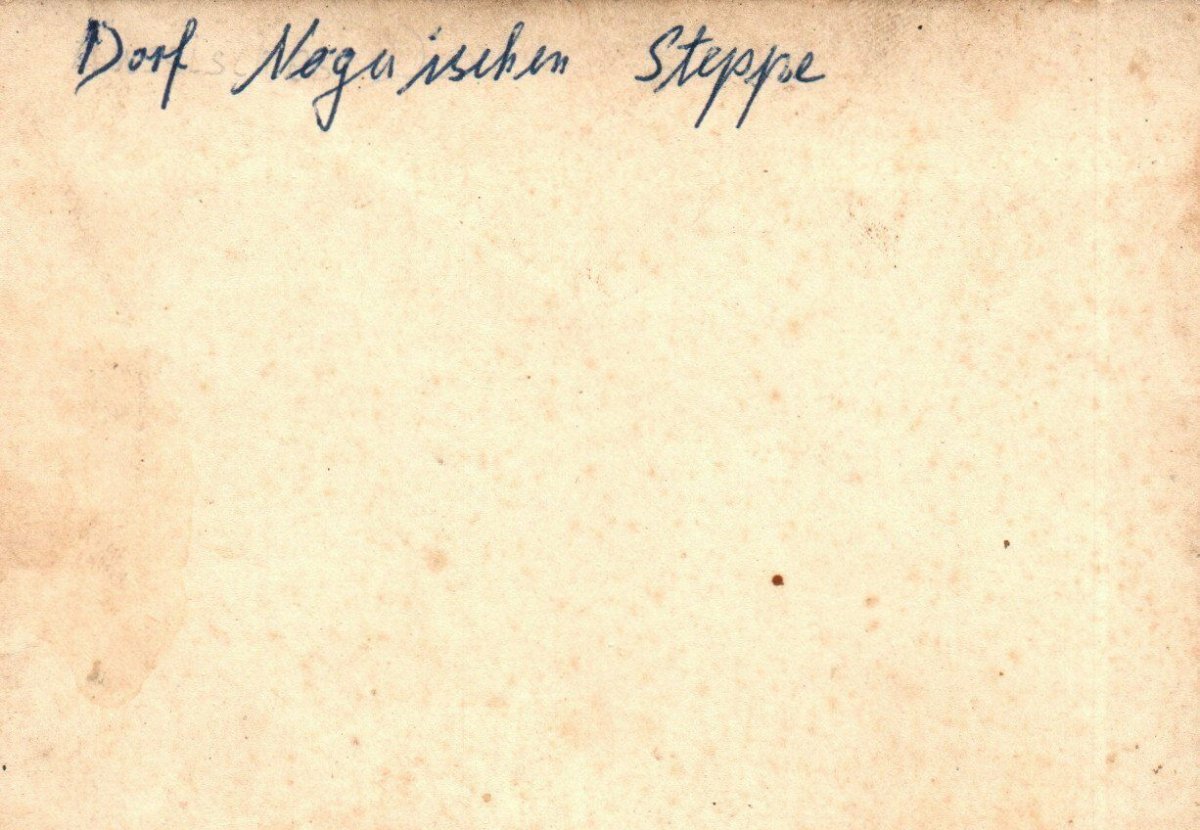 Dorf Nogaischen Steppe